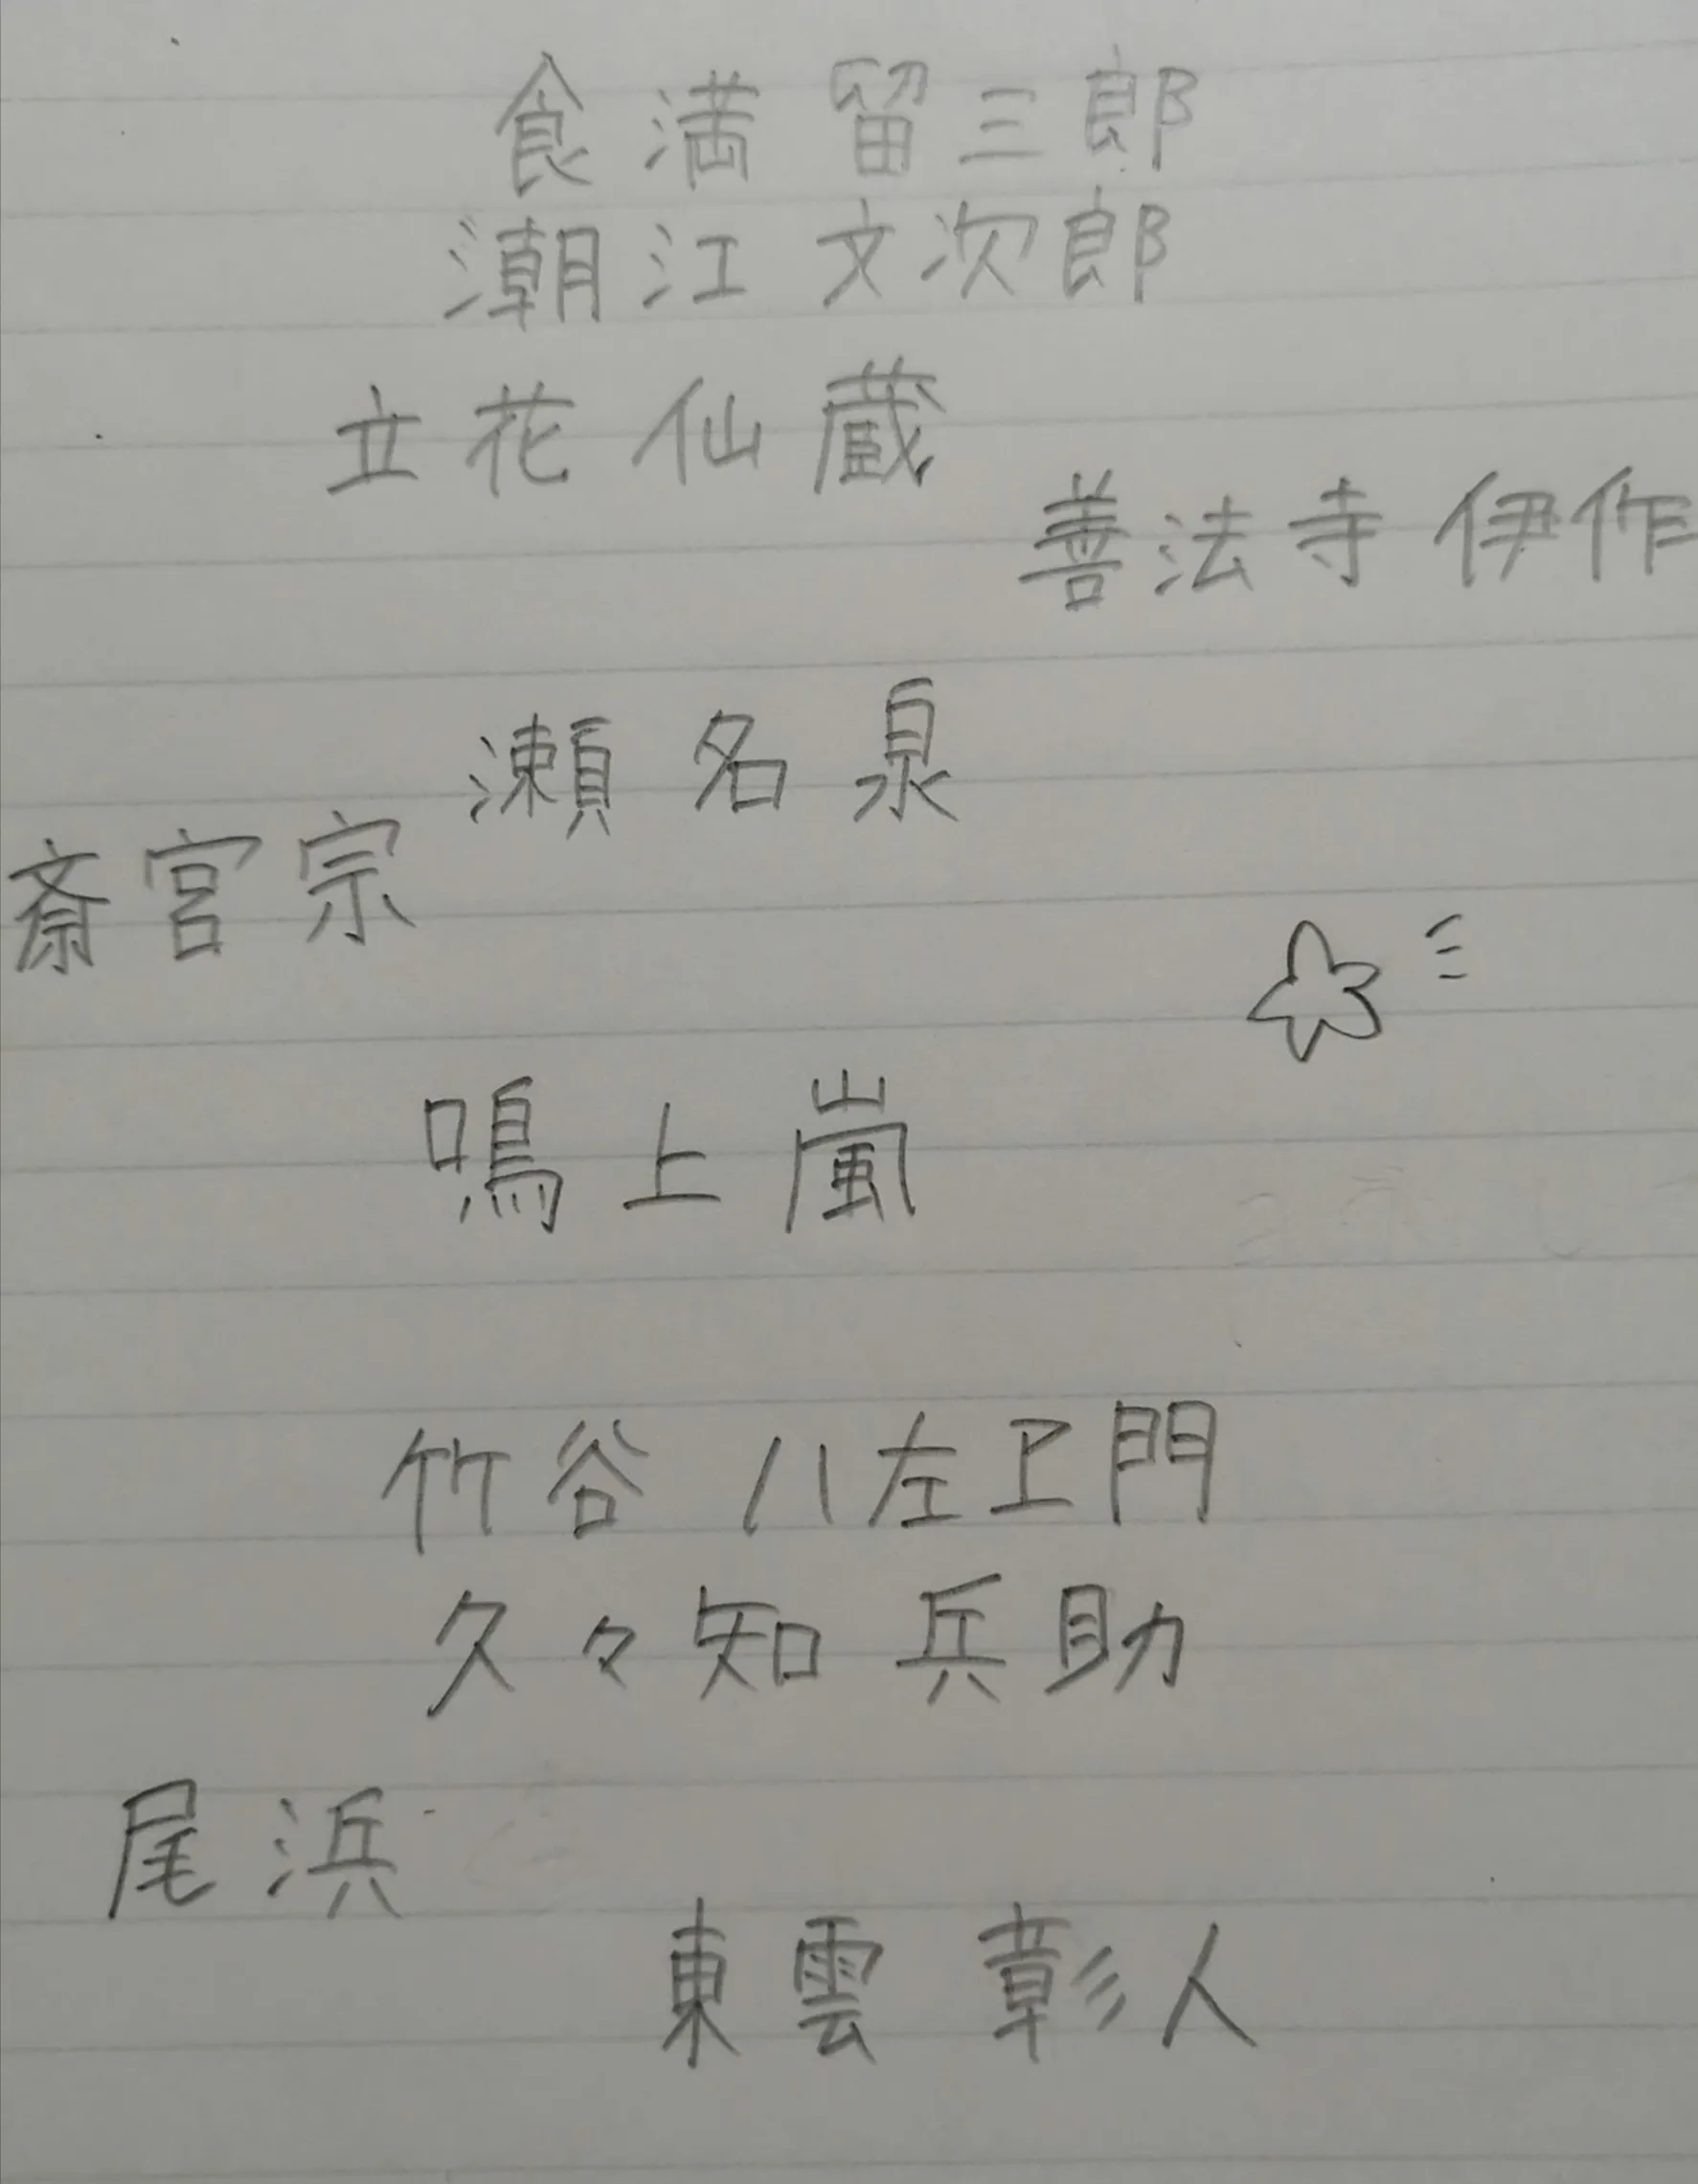 食満留三郎
潮江文次郎
立花仙蔵
善法寺伊作
瀬名泉
斎宮宗
鳴上嵐
竹谷八左ヱ門
久々知兵助
尾浜
東雲彰人